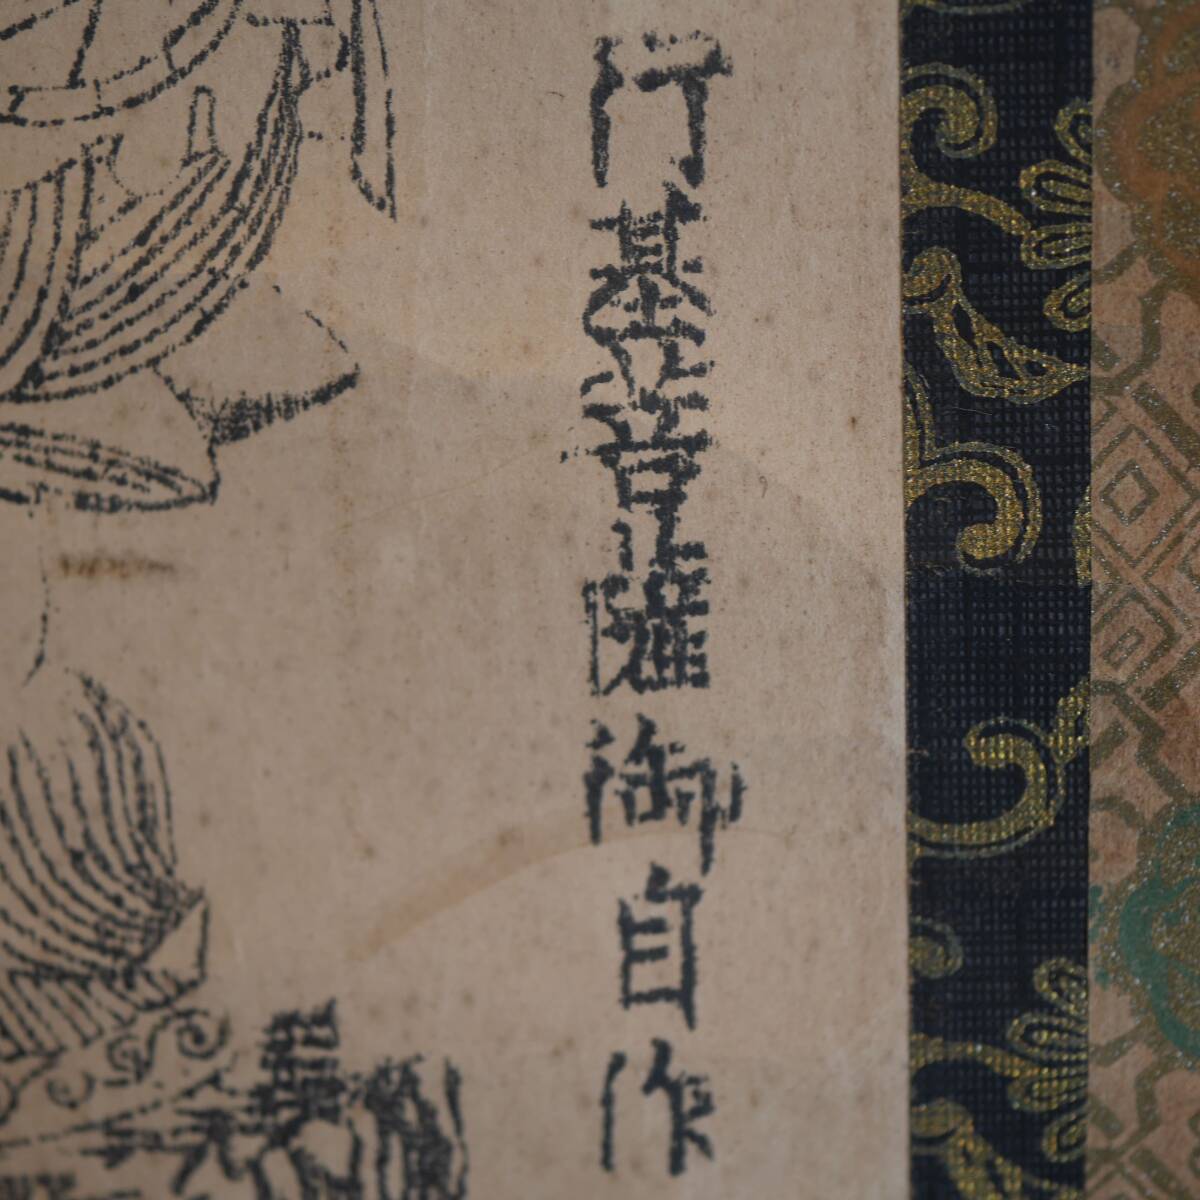 行基菩薩御自作